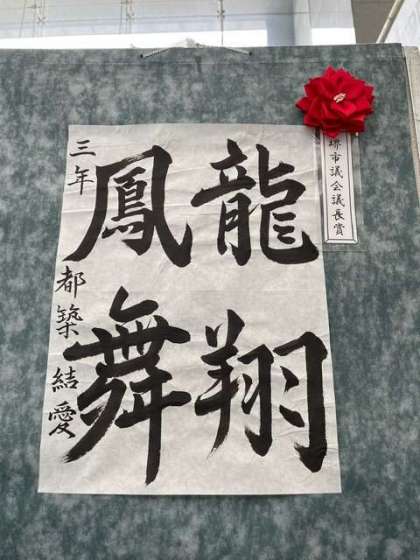 堺市議会議長賞
龍翔
鳳舞
三年 都築結愛